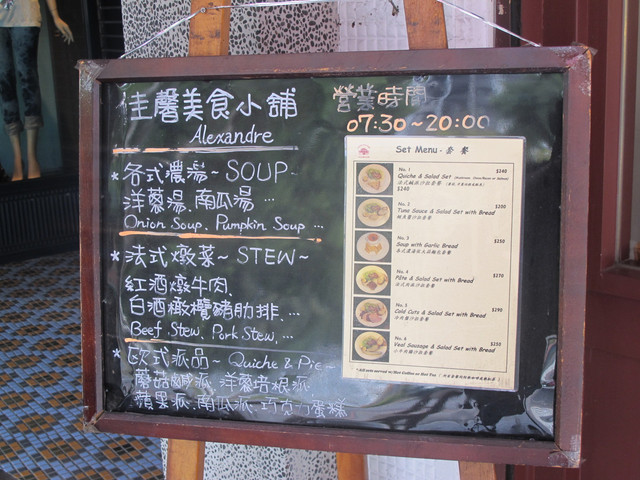 佳馨美食小舖
Alexandre
營業時間
07:30~20:00
* 各式濃湯~ SOUP
洋蔥湯、南瓜湯 …
Onion Soup, Pumpkin Soup …
* 法式燉菜~ STEW~
紅酒燉牛肉,
白酒橄欖豬肋排, …
Beef Stew, Pork Stew, …
* 歐式派品~ Quiche & Pie~
蘑菇鹹派、洋蔥培根派
蘋果派、南瓜派、巧克力蛋糕
Set Menu - 套餐
No. 1
Quiche & Salad Set
$240
$240
No. 2
Tuna Sauce & Salad Set with Bread
$200
No. 3
Soup with Garlic Bread
$150
No. 4
Pâte & Salad Set with Bread
$170
No. 5
Cold Cuts & Salad Set with Bread
$290
No. 6
Veal Sausage & Salad Set with Bread
$250